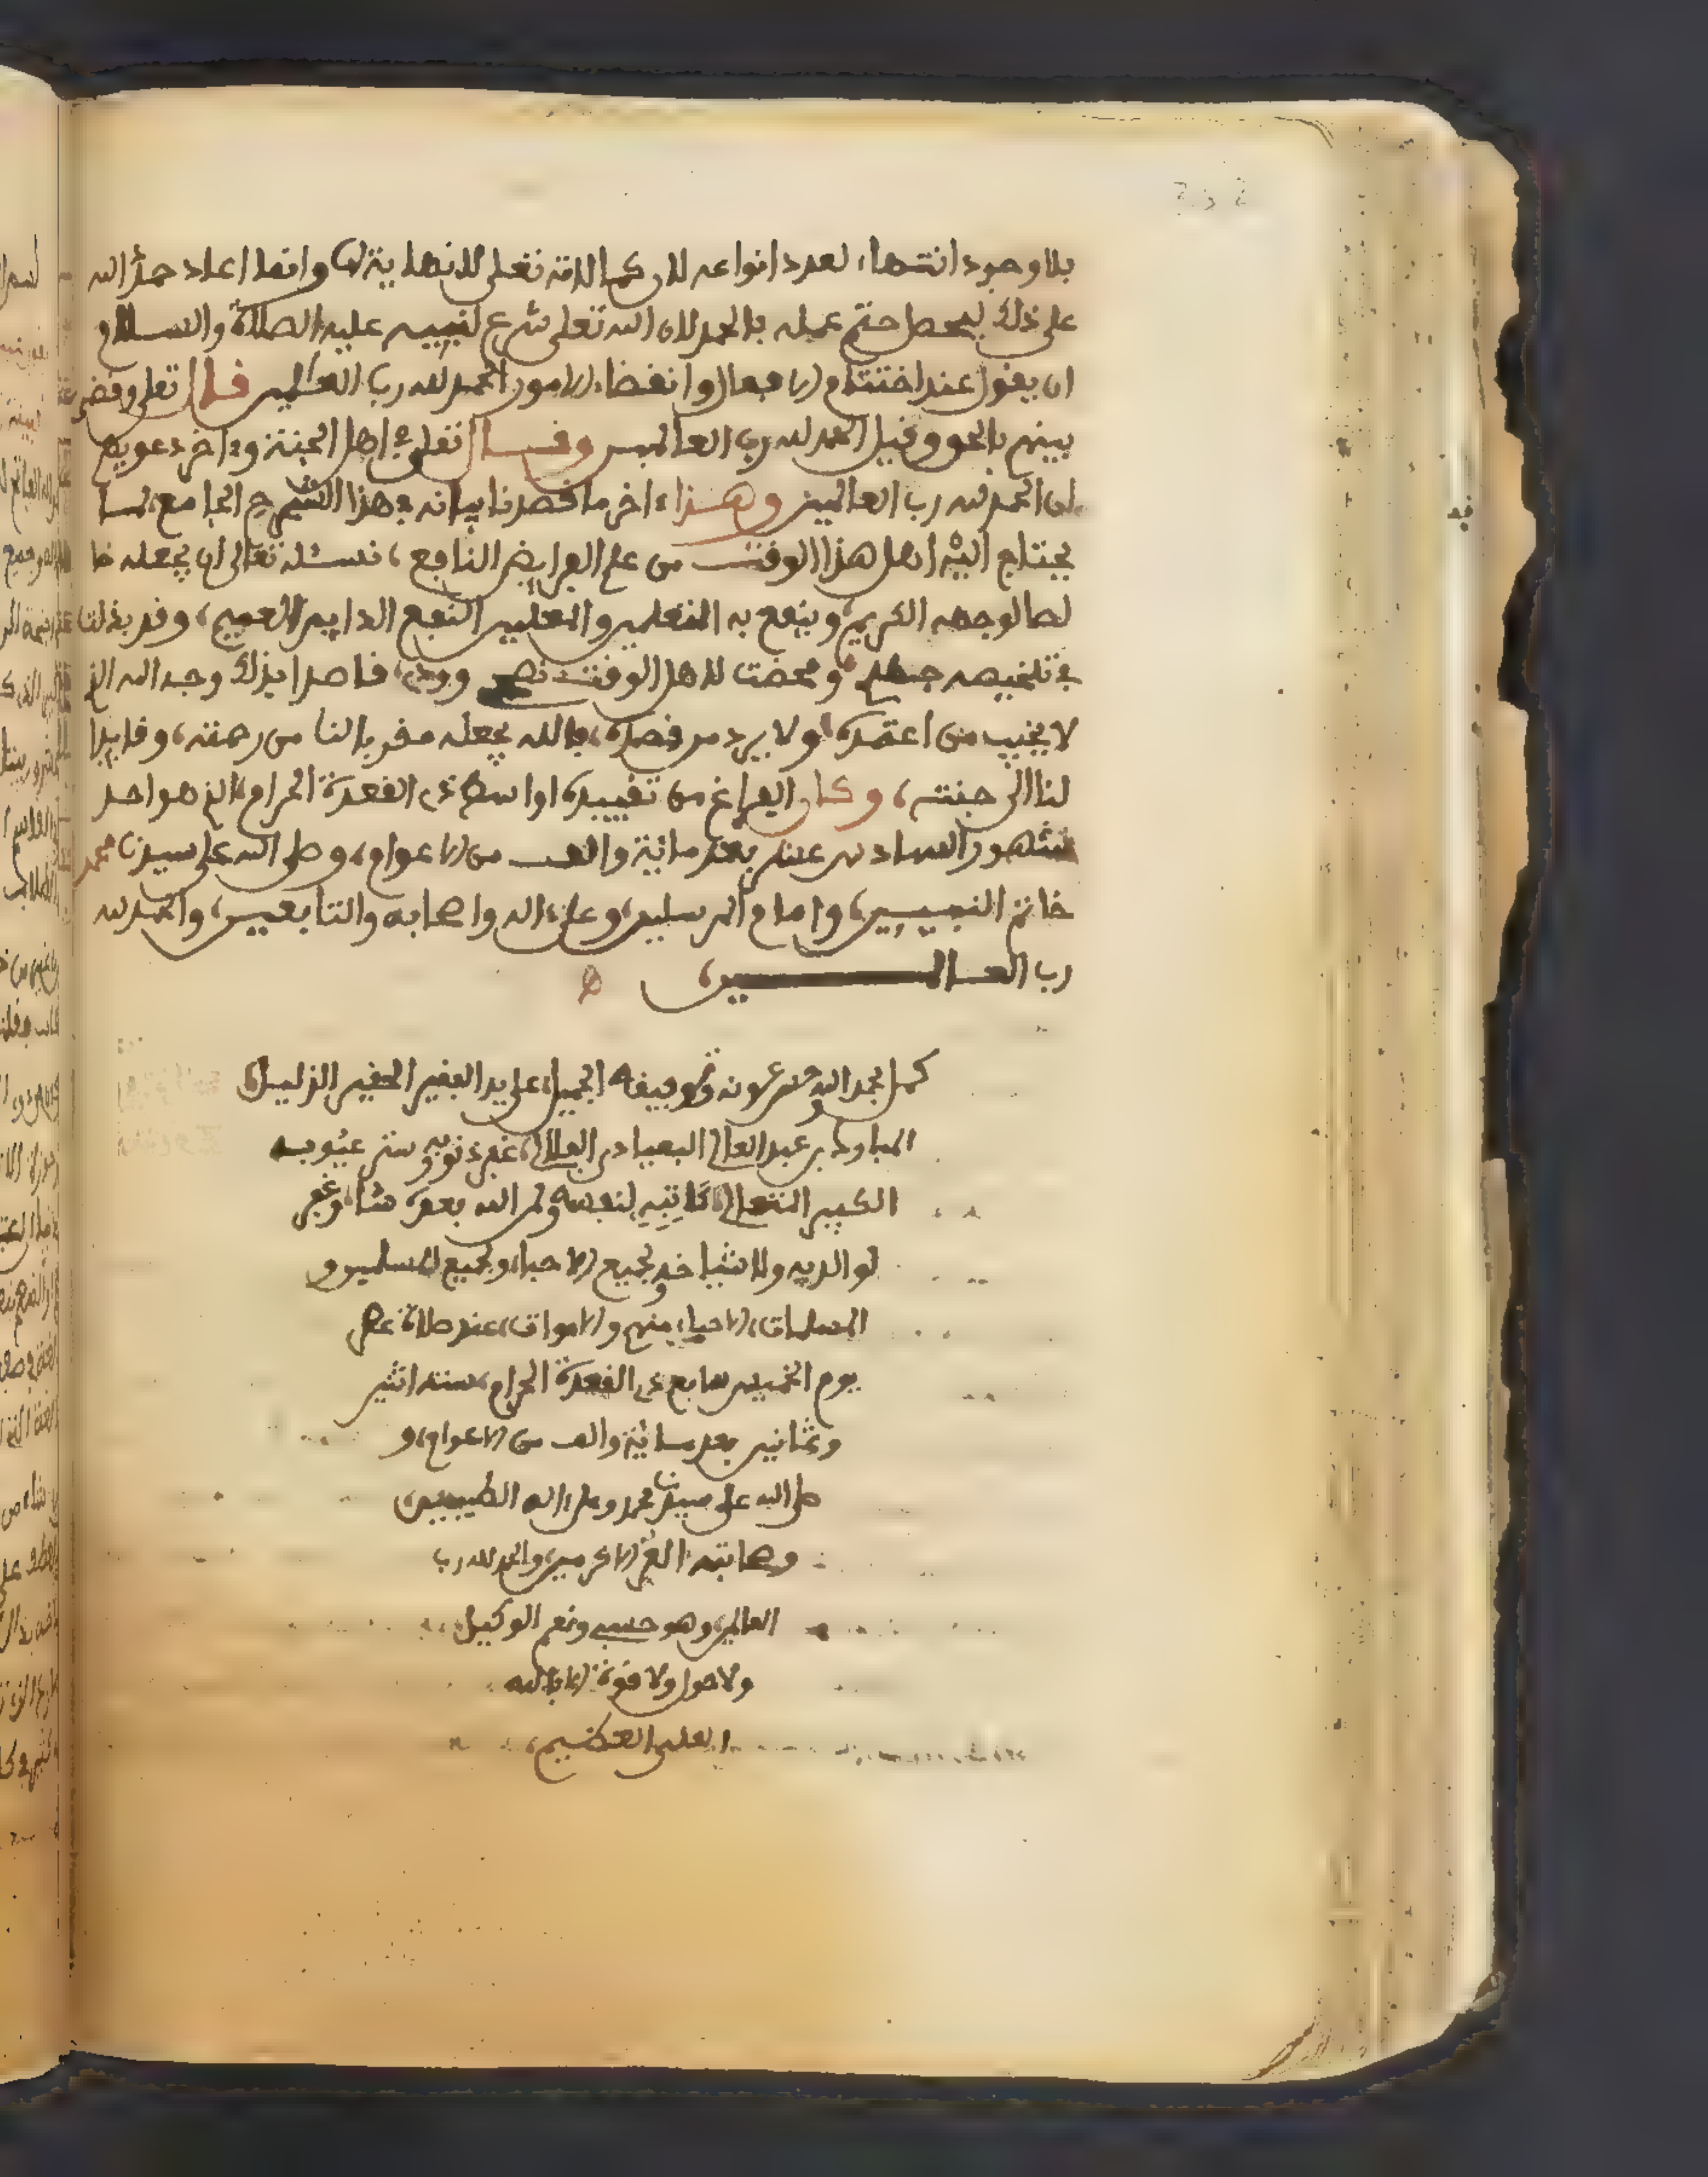 بلا وجود انتهاء لعدد انواعه لان كمالاته تعلى لا نهاية لها وانما اعاد حمد الله
على ذلك ليحصل ختم عمله بالحمد لان الله تعلى شرع لنبييه عليه الصلاة والسلام
ان يقول عند اختتام الافعال وانقضاء الامور الحمد لله رب العلمين قال تعلى وقضى
بينهم بالحق وقيل الحمد لله رب العالمين وقال تعلى في اهل الجنة وءاخر دعويهم
ان الحمد لله رب العالمين وهذا ءاخر ما قصدنا بيانه في هذا الشرح الجامع لما
يحتاج اليه اهل هذا الوقت من علم الفرايض النافع، نسئله تعالى ان يجعله خا
لصا لوجهه الكريم، وينفع به المتعلمين والمعلمين النفع الدايم العميم، وقد بذلت
في تلخيصه جهدي ومحضت لاهل الوقت نصحي وودي، قاصدا بذلك وجه الله الذي
لا يخيب من اعتمده ولا يرد من قصده، فالله يجعله مقربا لنا من رحمته، وقايدا
لنا الى جنته، وكان الفراغ من تقييده اواسط ذي القعدة الحرام الذي هو احد
شهور السادس عشر بعد مائة والف من الاعوام، وصلى الله على سيدنا محمد
خاتم النبيين، وامام المرسلين، وعلى ءاله واصحابه والتابعين، والحمد لله
رب العالمين،
كمل بحمد الله وحسن عونه وتوفيقه الجميل، على يد الفقير الحقير الذليل،
عبد العالي غفر ذنوبه وستر عيوبه
الكبير المتعالي، كاتبه لنفسه ولمن الله بعده شاء، وغفر
لوالديه ولاشياخه ولجميع الاحباء ولجميع المسلمين و
المسلمات، الاحياء منهم والاموات، عند صلاة عصر
يوم الخميس سابع ذي القعدة الحرام، سنة اثنين
وثمانين بعد مائة والف من الاعوام، و
صلى الله على سيدنا محمد وعلى ءاله الطيبين،
وصحابته الغر الاكرمين، والحمد لله رب
العالمين، وهو حسبي ونعم الوكيل
ولا حول ولا قوة الا بالله
العلي العظيم،